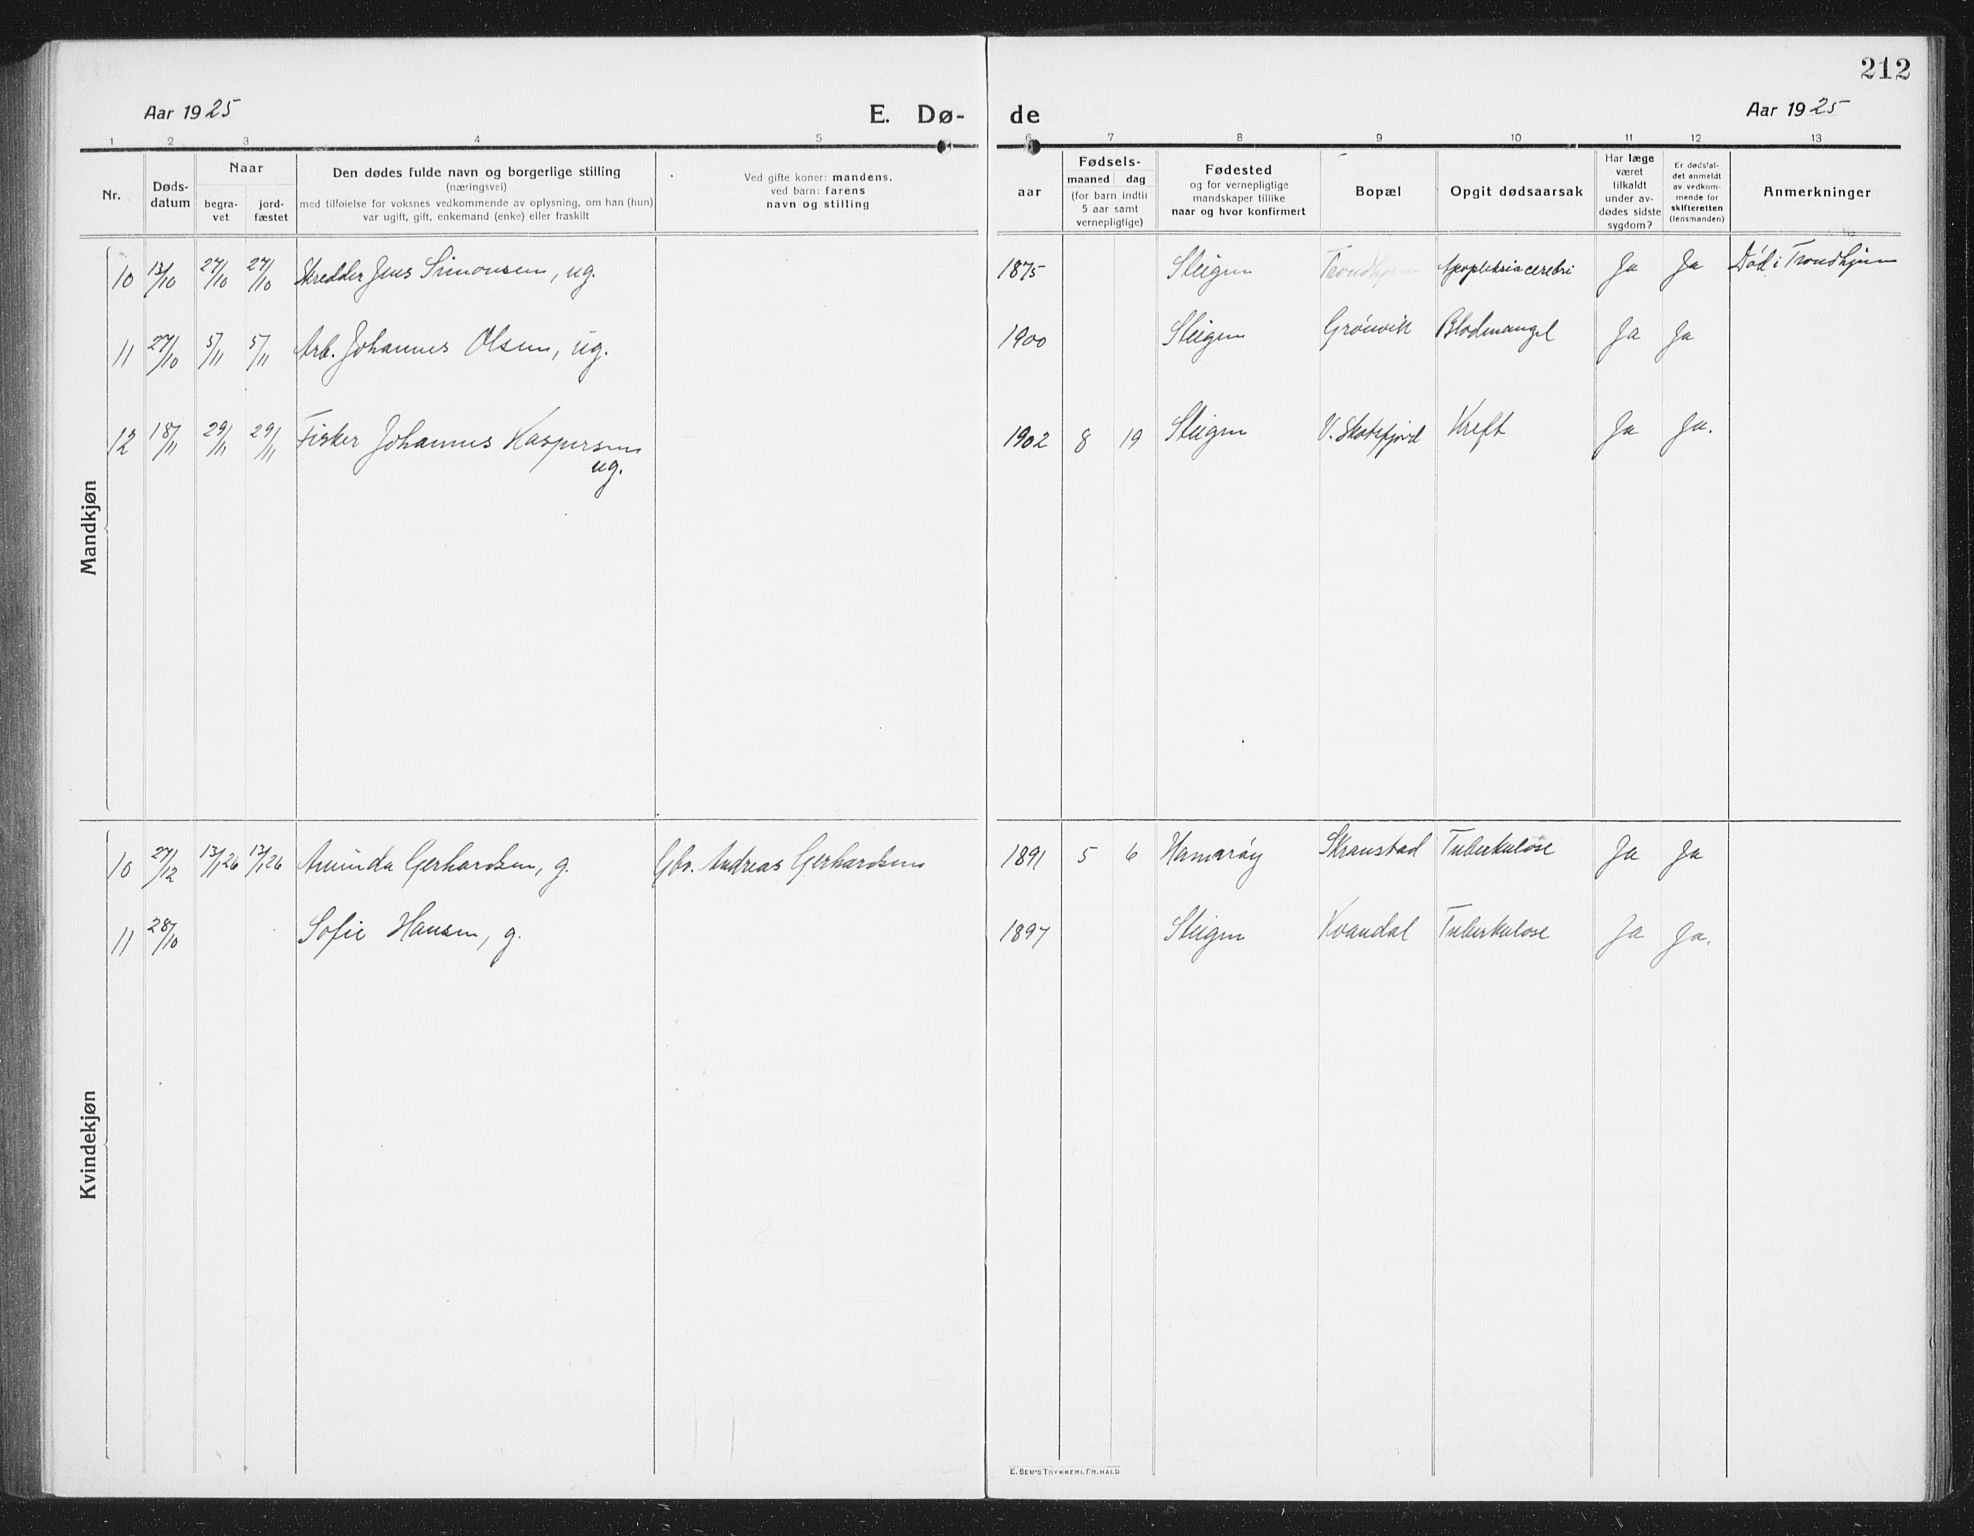 212
Aar 1925
E. Dø-
de
Aar 1925
1 2 3 4 5 6 7 8 9 10 11 12 13
Nr.
Døds-
datum
Naar
begra-
vet
jord-
fæstet
Den dødes fulde navn og borgerlige stilling
(næringsvei)
med tilføielse for voksnes vedkommende av oplysning, om han (hun)
var ugift, gift, enkemand (enke) eller fraskilt
Ved gifte koner: mandens,
ved barn: farens
navn og stilling
aar
Fødsels-
maaned dag
(for barn indtil
5 aar samt
vernepligtige)
Fødested
og for vernepligtige
mandskaper tillike
naar og hvor konfirmert
Bopæl
Opgit dødsaarsak
Har læge
været
tilkaldt
under av-
dødes sidste
sygdom?
Er dødsfal-
det anmeldt
av vedkom-
mende for
skifteretten
(lensmanden)
Anmerkninger
Mandkjøn
10 13/10 27/10 27/10 Skredder Jens Simonsen, ug. 1875 Steigen Trondhjem Apopleksia cerebri Ja Ja Død i Trondhjem
11 27/10 5/11 5/11 Arb. Johannes Olsen, ug. 1900 Steigen Grönvik Blodmangel Ja Ja
12 18/11 29/11 29/11 Fisker Johannes Kaspersen 1902 8 19 Steigen V. Skotsfjord Kreft Ja Ja.
ug.
Kvindekjøn
10 27/12 13/1 26 13/1 26 Aminda Gerhardsen, g. Gbr. Andreas Gerhardsen 1891 5 6 Hamaröy Skranstad Tuberkulose Ja Ja
11 28/10 Sofie Hansen, g. 1897 Steigen Kvandal Tuberkulose Ja Ja.
E. SEM'S TRYKKERI, FR.HALD